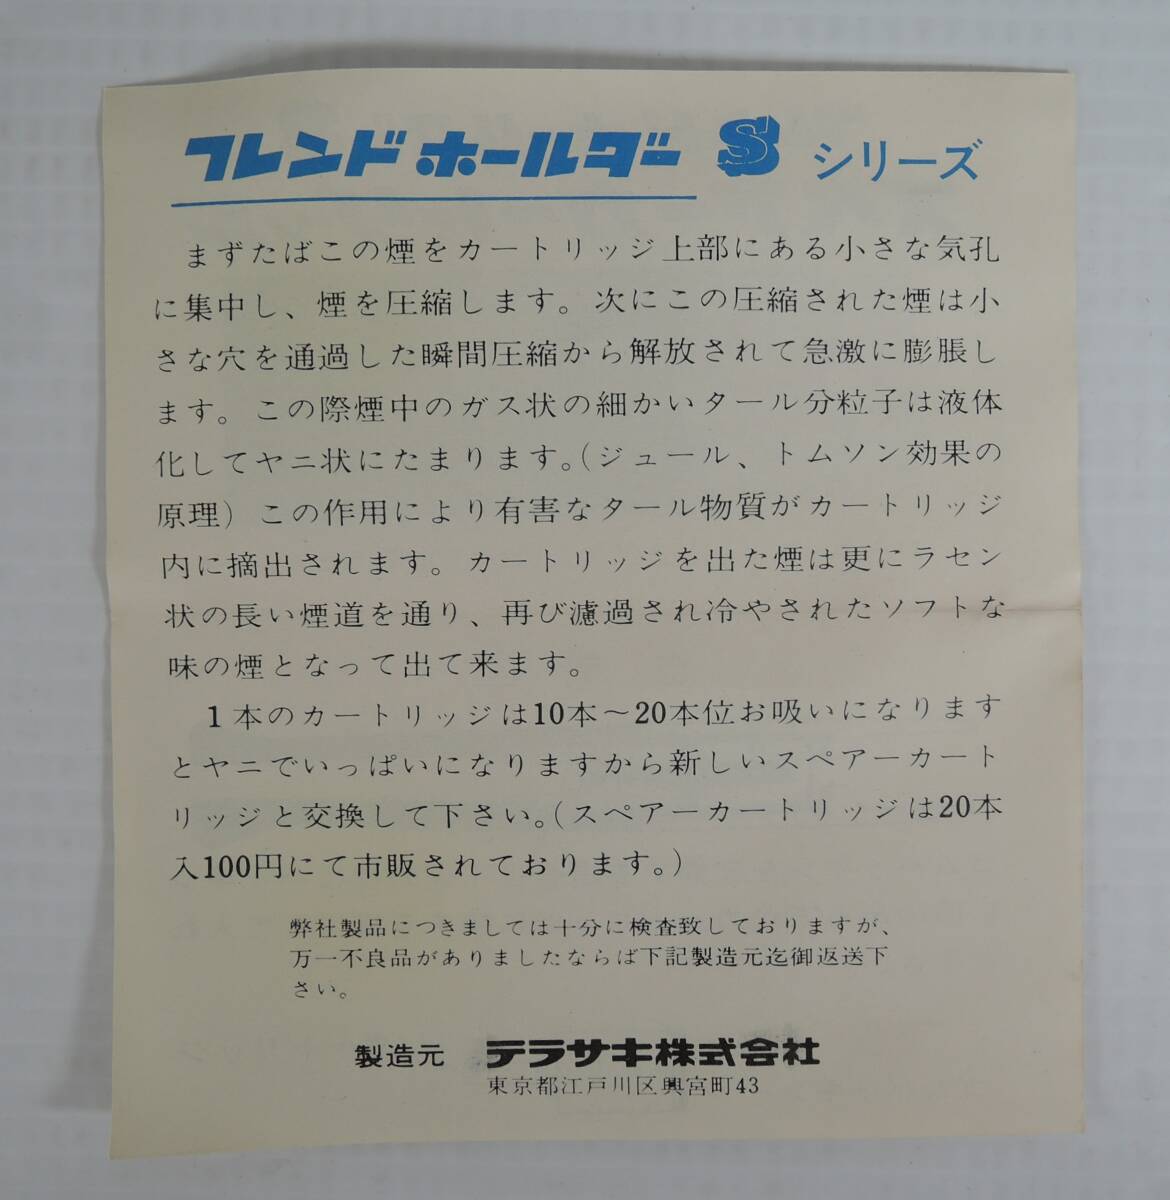 フレンドホールダー S シリーズ
まずたばこの煙をカートリッジ上部にある小さな気孔
に集中し、煙を圧縮します。次にこの圧縮された煙は小
さな穴を通過した瞬間圧縮から解放されて急激に膨脹し
ます。この際煙中のガス状の細かいタール分粒子は液体
化してヤニ状にたまります。(ジュール、トムソン効果の
原理) この作用により有害なタール物質がカートリッジ
内に摘出されます。カートリッジを出た煙は更にラセン
状の長い煙道を通り、再び濾過され冷やされたソフトな
味の煙となって出て来ます。
1本のカートリッジは10本～20本位お吸いになります
とヤニでいっぱいになりますから新しいスペアーカート
リッジと交換して下さい。(スペアーカートリッジは20本
入100円にて市販されております。)
弊社製品につきましては十分に検査致しておりますが、
万一不良品がありましたならば下記製造元迄御返送下
さい。
製造元 テラサキ株式会社
東京都江戸川区興宮町43